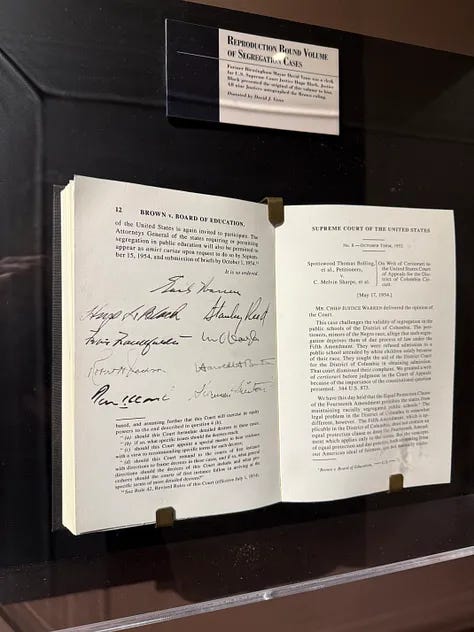 REPRODUCTION BOUND VOLUME
OF SEGREGATION CASES
Former Birmingham Mayor David Vann was a clerk
for U.S. Supreme Court Justice Hugo Black. Justice
Black presented the original of this volume to him.
All nine Justices autographed the Brown ruling.
Donated by David J. Vann
12 BROWN v. BOARD OF EDUCATION.
of the United States is again invited to participate. The
Attorneys General of the states requiring or permitting
segregation in public education will also be permitted to
appear as amici curiae upon request to do so by Septem-
ber 15, 1954, and submission of briefs by October 1, 1954.
It is so ordered.
Earl Warren
Hugo L Black Stanley Reed
Felix Frankfurter Wm O Douglas
Robert H Jackson Harold H Burton
Tom C Clark Sherman Minton
bound, and assuming further that this Court will exercise its equity
powers to the end described in question 4 (b),
"(a) should this Court formulate detailed decrees in these cases;
"(b) if so, what specific issues should the decrees reach;
"(c) should this Court appoint a special master to hear evidence
with a view to recommending specific terms for such decrees;
"(d) should this Court remand to the courts of first instance
with directions to frame decrees in these cases, and if so, what general
directions should the decrees of this Court include and what pro-
cedures should the courts of first instance follow in arriving at the
specific terms of more detailed decrees?"
See Rule 42, Revised Rules of this Court (effective July 1, 1954).
SUPREME COURT OF THE UNITED STATES
No. 8.—OCTOBER TERM, 1953.
Spottswood Thomas Bolling,
et al., Petitioners,
v.
C. Melvin Sharpe, et al.
On Writ of Certiorari to
the United States Court
of Appeals for the Dis-
trict of Columbia Cir-
cuit.
[May 17, 1954.]
MR. CHIEF JUSTICE WARREN delivered the opinion of
the Court.
This case challenges the validity of segregation in the
public schools of the District of Columbia. The peti-
tioners, minors of the Negro race, allege that such segre-
gation deprives them of due process of law under the
Fifth Amendment. They were refused admission to a
public school attended by white children solely because
of their race. They sought the aid of the District Court
for the District of Columbia in obtaining admission.
That court dismissed their complaint. We granted a writ
of certiorari before judgment in the Court of Appeals
because of the importance of the constitutional question
presented. 344 U.S. 873.
We have this day held that the Equal Protection Clause
of the Fourteenth Amendment prohibits the states from
maintaining racially segregated public schools. The
legal problem in the District of Columbia is somewhat
different, however. The Fifth Amendment, which is ap-
plicable in the District of Columbia, does not contain an
equal protection clause as does the Fourteenth Amend-
ment which applies only to the states. But the concepts
of equal protection and due process, both stemming from
our American ideal of fairness, are not mutually
Brown v. Board of Education, — U.S. —.